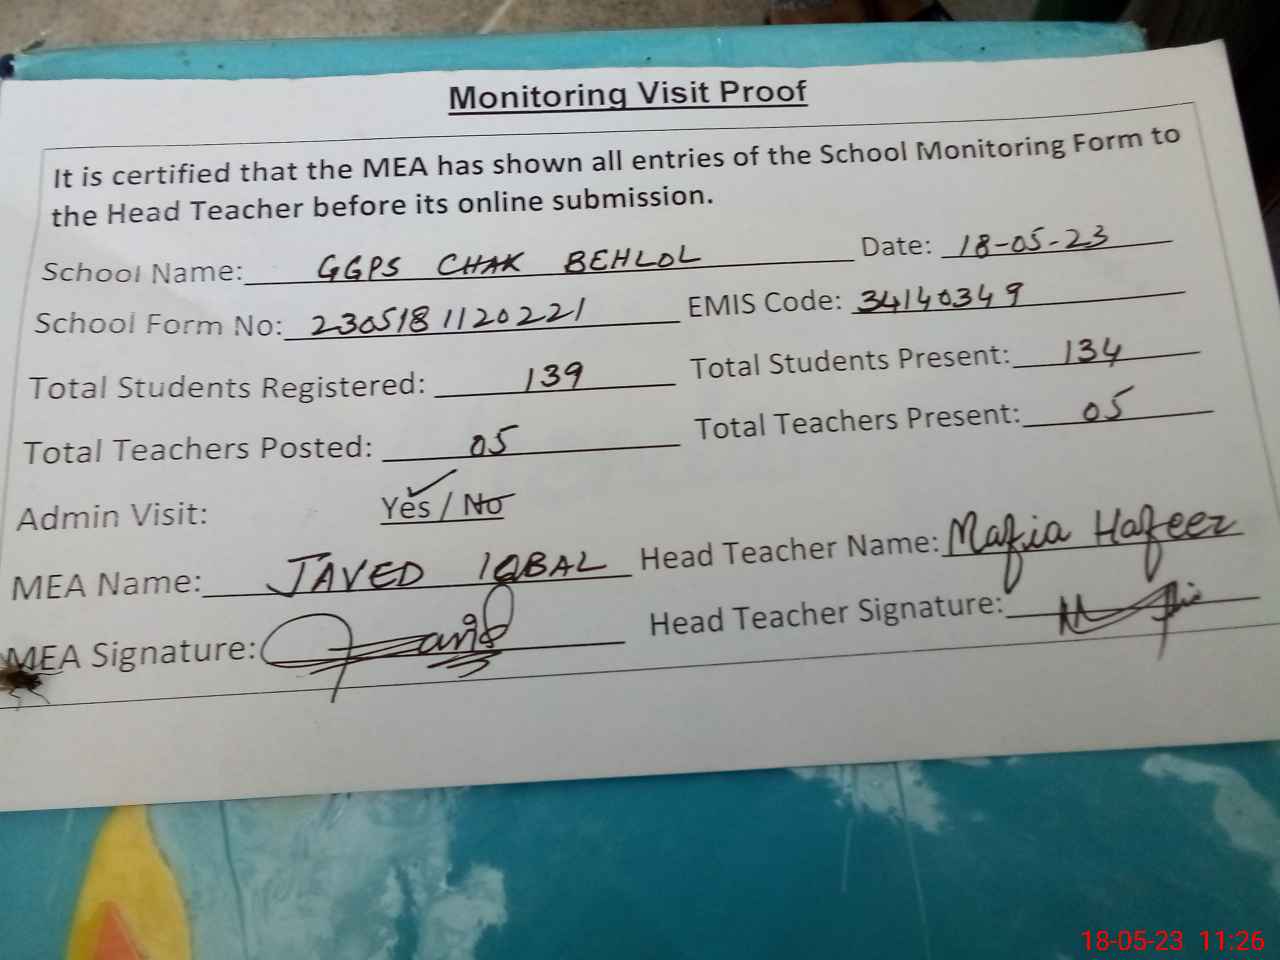 Monitoring Visit Proof
It is certified that the MEA has shown all entries of the School Monitoring Form to
the Head Teacher before its online submission.
School Name: GGPS CHAK BEHLOL Date: 18-05-23
School Form No: 230518 1120221 EMIS Code: 34140349
Total Students Registered: 139 Total Students Present: 134
Total Teachers Posted: 05 Total Teachers Present: 05
Admin Visit: Yes / No
MEA Name: JAVED IQBAL Head Teacher Name: Mafia Hafeez
MEA Signature: Head Teacher Signature:
18-05-23 11:26